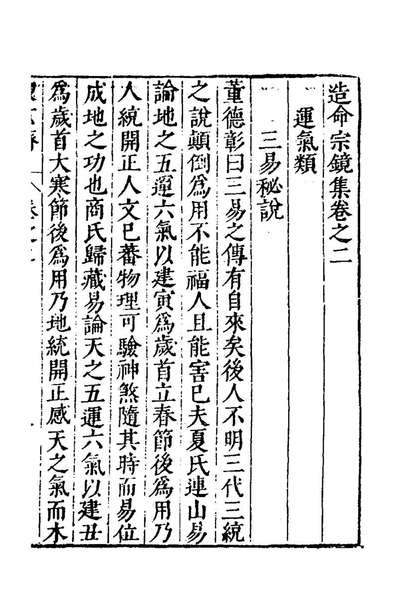 造命宗鏡集卷之二
運氣類
三易秘說
董德彰曰三易之傳有自來矣後人不明三代三統
之說顛倒為用不能福人且能害已夫夏氏連山易
論地之五運六氣以建寅為歲首立春節後為用乃
人統開正人文已蕃物理可驗神煞隨其時而易位
成地之功也商氏歸藏易論天之五運六氣以建丑
為歲首大寒節後為用乃地統開正感天之氣而木